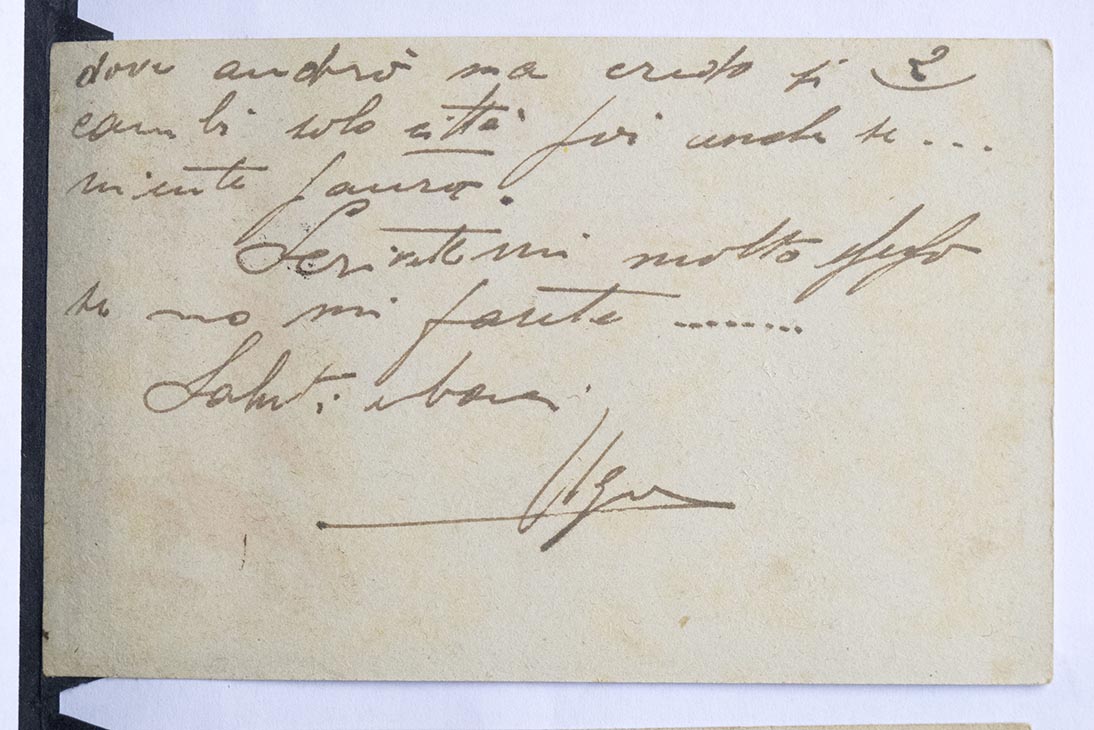 dove andrò ma credo si 2
cambi solo città poi anche se ...
niente paura.
Scrivetemi molto spesso
se no mi farete ........
Saluti e baci
Ugo